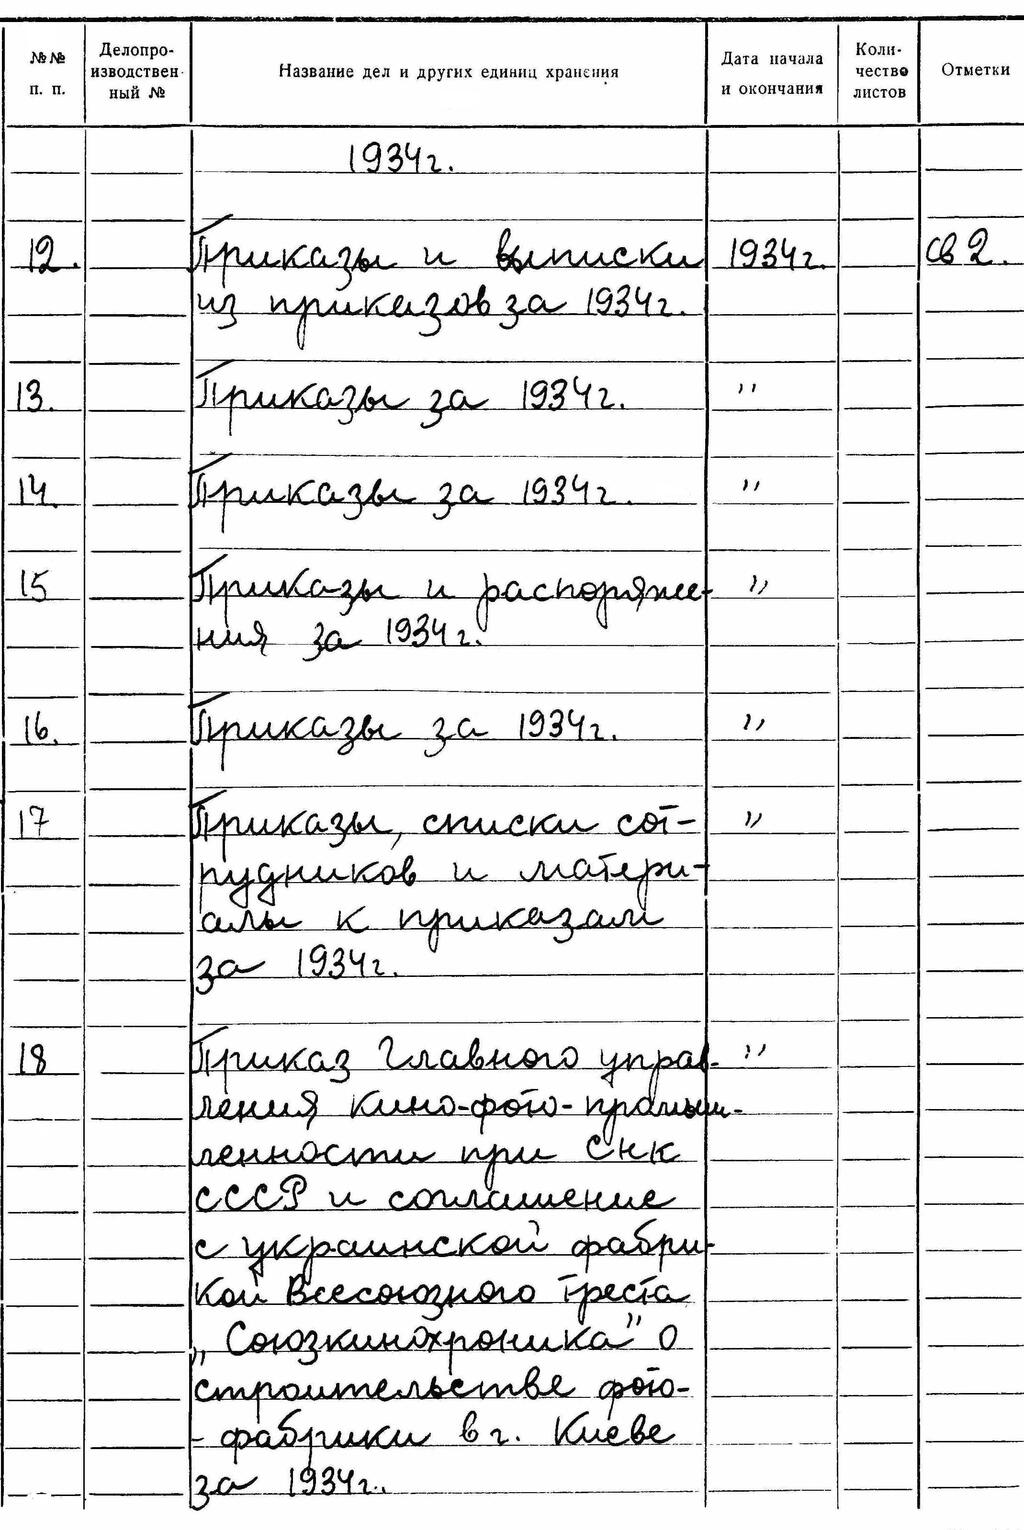 №№ п. п. Делопроизводствен- ный № Название дел и других единиц хранения Дата начала и окончания Количество листов Отметки
1934г.
12. Приказы и выписки 1934г. св 2.
из приказов за 1934г.
13. Приказы за 1934г. "
14. Приказы за 1934г. "
15 Приказы и распоряже- "
ния за 1934г.
16. Приказы за 1934г. "
17 Приказы, списки сот- "
рудников и матери-
алы к приказам
за 1934г.
18 Приказ Главного управ- "
ления кино-фото-промыш-
ленности при СНК
СССР и соглашение
с украинской фабри-
кой Всесоюзного треста
„Союзкинохроника" о
строительстве фото-
-фабрики в г. Киеве
за 1934г.